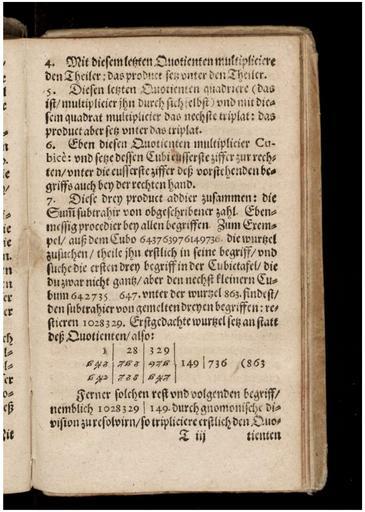 4. Mit diesem letzten Quotienten multipliciere
den Theiler: das product setz vnter den Theiler.
5. Diesen letzten Quotienten quadriere (das
ist/ multiplicier jhn durch sich selbst) vnd mit die-
sem quadrat multiplicier das nechste triplat: das
product aber setz vnter das triplat.
6. Eben diesen Quotienten multiplicier Cu-
bicè: vnd setze dessen Cubi eusserste ziffer zur rech-
ten/ vnter die eusserste ziffer deß vorstehenden be-
griffs auch bey der rechten hand.
7. Diese drey product addier zusammen: die
Sum̃ subtrahir von obgeschribener zahl. Eben-
messig procedier bey allen begriffen. Zum Exem-
pel/ auß dem Cubo 643763976149736. die wurtzel
zusuchen/ theile jhn erstlich in seine begriff/ vnd
suche die ersten drey begriff in der Cubictafel/ die
du zwar nicht gantz/ aber den nechst kleinern Cu-
bum 642735 647. vnter der wurtzel 863. findest/
den subtrahier von gemelten dreyen begriffen: re-
stieren 1028329. Erstgedachte wurtzel setz an statt
deß Quotienten/ also:
1 | 28 | 329
| 149 | 736 (863
Ferner solchen rest vnd volgenden begriff/
nemblich 1028329 | 149. durch gnomonische di-
vision zu resolvirn/ so tripliciere erstlich den Quo-
T iij tienten